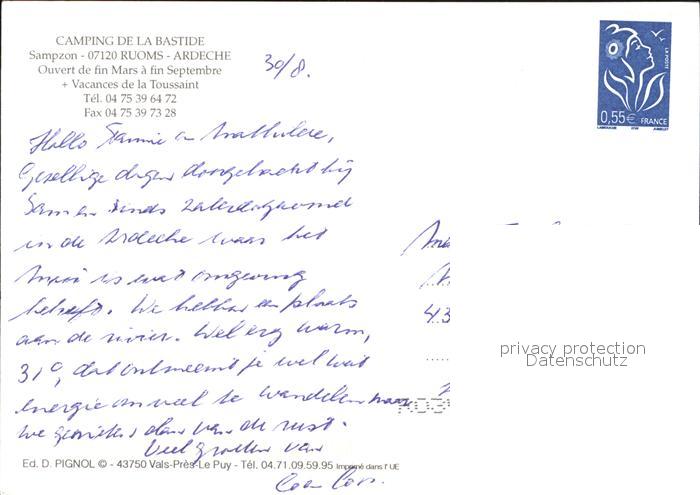 CAMPING DE LA BASTIDE
Sampzon - 07120 RUOMS - ARDECHE
Ouvert de fin Mars à fin Septembre
+ Vacances de la Toussaint
Tél. 04 75 39 64 72
Fax 04 75 39 73 28
30/8.
LA POSTE
0,55€ FRANCE
Hallo
Gezellige dagen doorgebracht bij
Sam en sinds zaterdagavond
in de Ardeche waar het
mooi is wat omgeving
betreft. We hebben een plaats
aan de rivier. Wel erg warm,
31°, dat ontneemt je wel wat
energie om veel te wandelen maar
we genieten dan van de rust.
Veel groeten van
privacy protection
Datenschutz
Ed. D. PIGNOL © - 43750 Vals-Près-Le Puy - Tél. 04.71.09.59.95 Imprimé dans l'UE